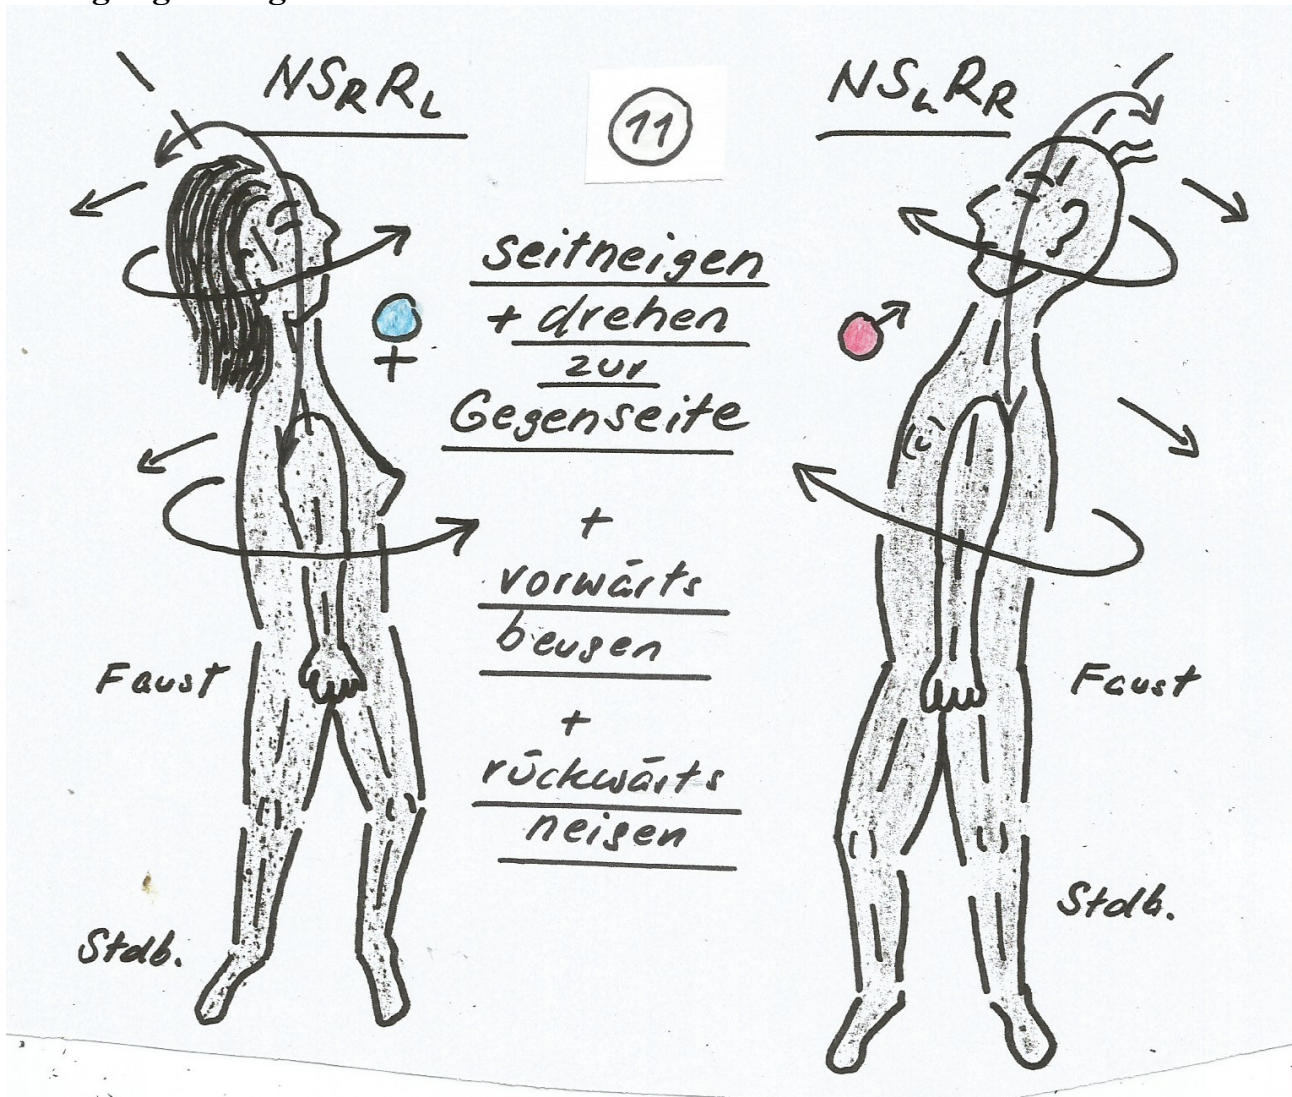 NSRRL
11
NSLRR
seitneigen
+ drehen
zur
Gegenseite
+
vorwärts
beugen
+
rückwärts
neigen
Faust
Faust
Stdb.
Stdb.